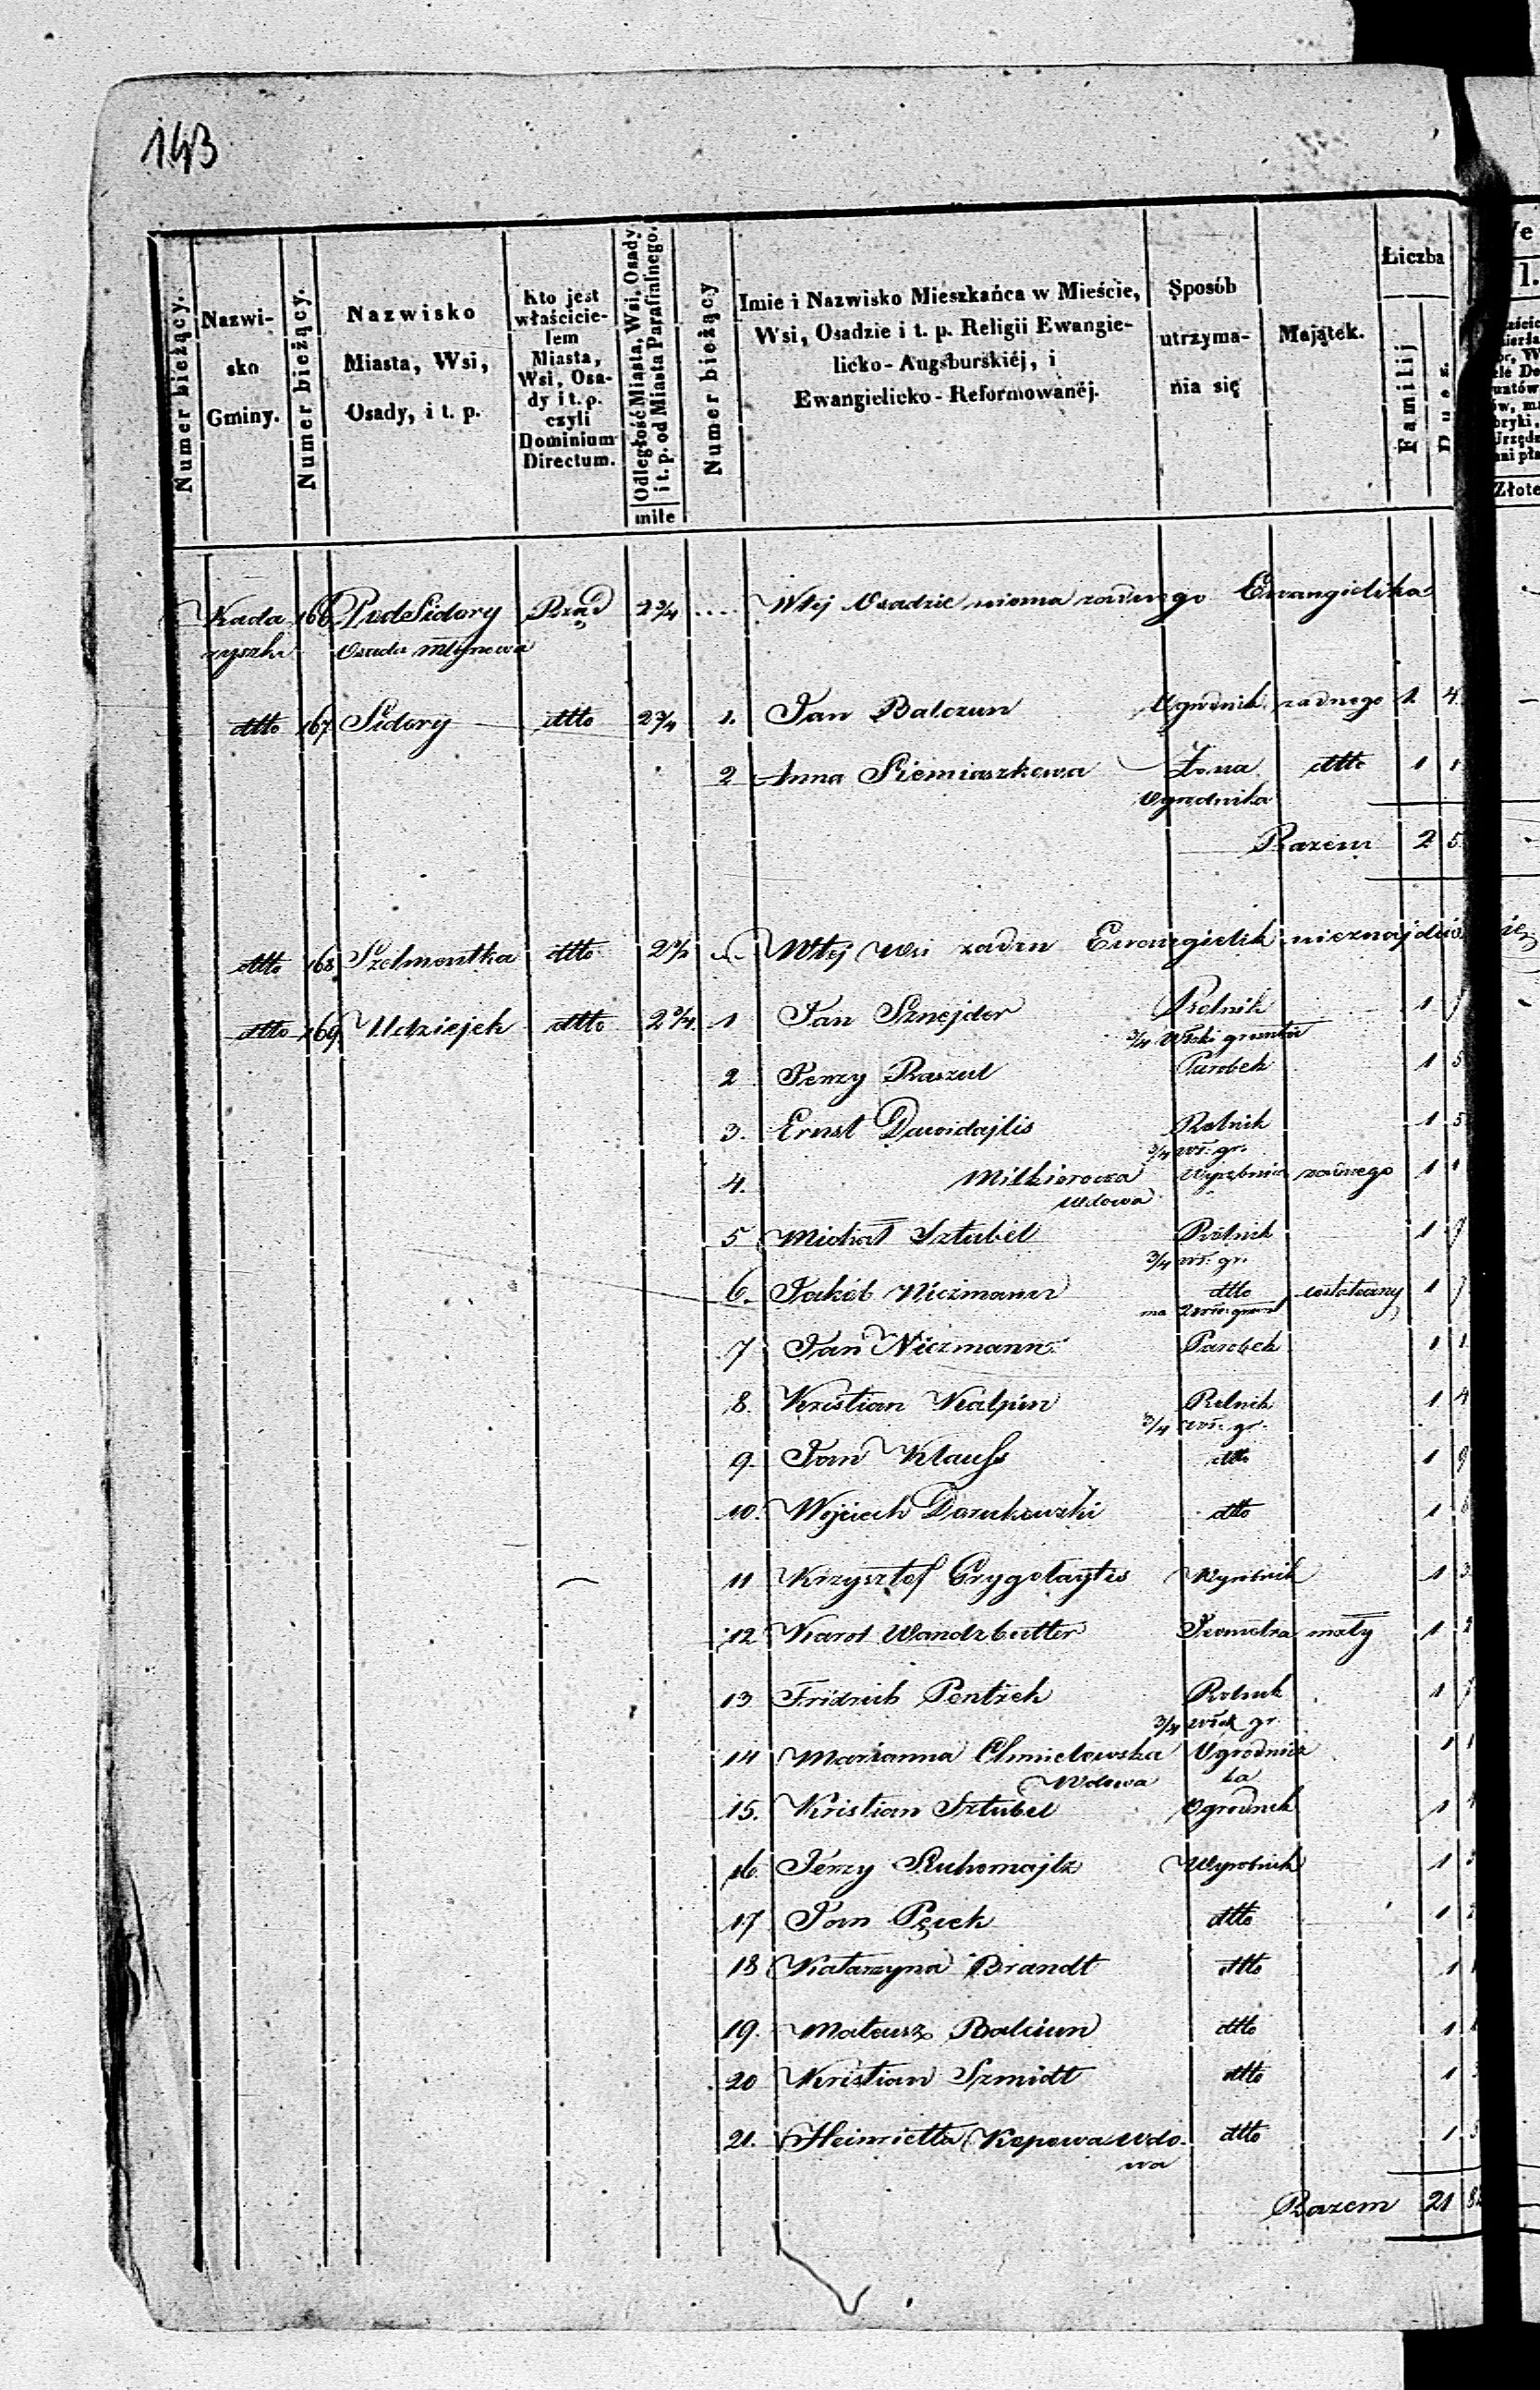 143
Numer bieżący.
Nazwi-
sko
Gminy.
Numer bieżący.
Nazwisko
Miasta, Wsi,
Osady, i t. p.
Kto jest
właścicie-
lem
Miasta,
Wsi, Osa-
dy i t. p.
czyli
Dominium
Directum.
Odległość Miasta, Wsi, Osady,
i t. p. od Miasta Parafialnego.
mile
Numer bieżący
Imie i Nazwisko Mieszkańca w Mieście,
Wsi, Osadzie i t. p. Religii Ewangie-
licko-Augsburskiéj, i
Ewangielicko-Reformowanéj.
Sposób
utrzyma-
nia się
Majątek.
Liczba
Familij
Dusz.
Kada 166 PodSidory Rząd 2¾ .... Wtéj Osadzie niema żadnego Ewangielika
ryszki Osada młynowa
dtto 167 Sidory dtto 2¾ 1. Jan Balczun Ogrodnik żadnego 1 4.
2 Anna Siemiaszkowa Żona dtto 1 1
Ogrodnika
Razem 2 5.
dtto 168 Szelmentka dtto 2½ ... Wtéj Wsi żaden Ewangielik nieznajduie się
dtto 169 Udziejek dtto 2¾. 1 Jan Sznejder Rolnik 1
¾ Włoki gruntu
2 Jerzy Raszul Parobek 1 5
3. Ernst Dawidajtis Rolnik 1 5
¾ wł. gr.
4. Milkierowa Wyrobnica żadnego 1 1
wdowa
5 Michał Sztubel Rolnik 1 9
¾ wł. gr.
6. Jakób Niczmann dtto 1
7 Jan Niczmann Parobek 1 1
8. Kristian Kalpin Rolnik 1 4
¾ wł. gr.
9. Jan Klauss dtto 1 9
10. Wojciech Darukowski dtto 1
11 Krzysztof Grygołaytis Wyrobnik 1 3
12 Karol Wandzbutter Jeometra mały 1 2
13 Fridrich Pentzek Rolnik 1
¾ włok gr.
14 Marianna Chmielewska Ogrodnicz 1 1
Wdowa ka
15. Kristian Sztubel Ogrodnik 1 4
16. Jerzy Ruhomajtz Wyrobnik 1 3
17 Jan Pęick dtto 1 2
18 Katarzyna Brandt dtto 1 1
19. Mateusz Balciun dtto 1
20 Kristian Szmidt dtto 1 3
21. Heinrietta Kopowa Wdo- dtto 1 3
wa
Razem 21 8